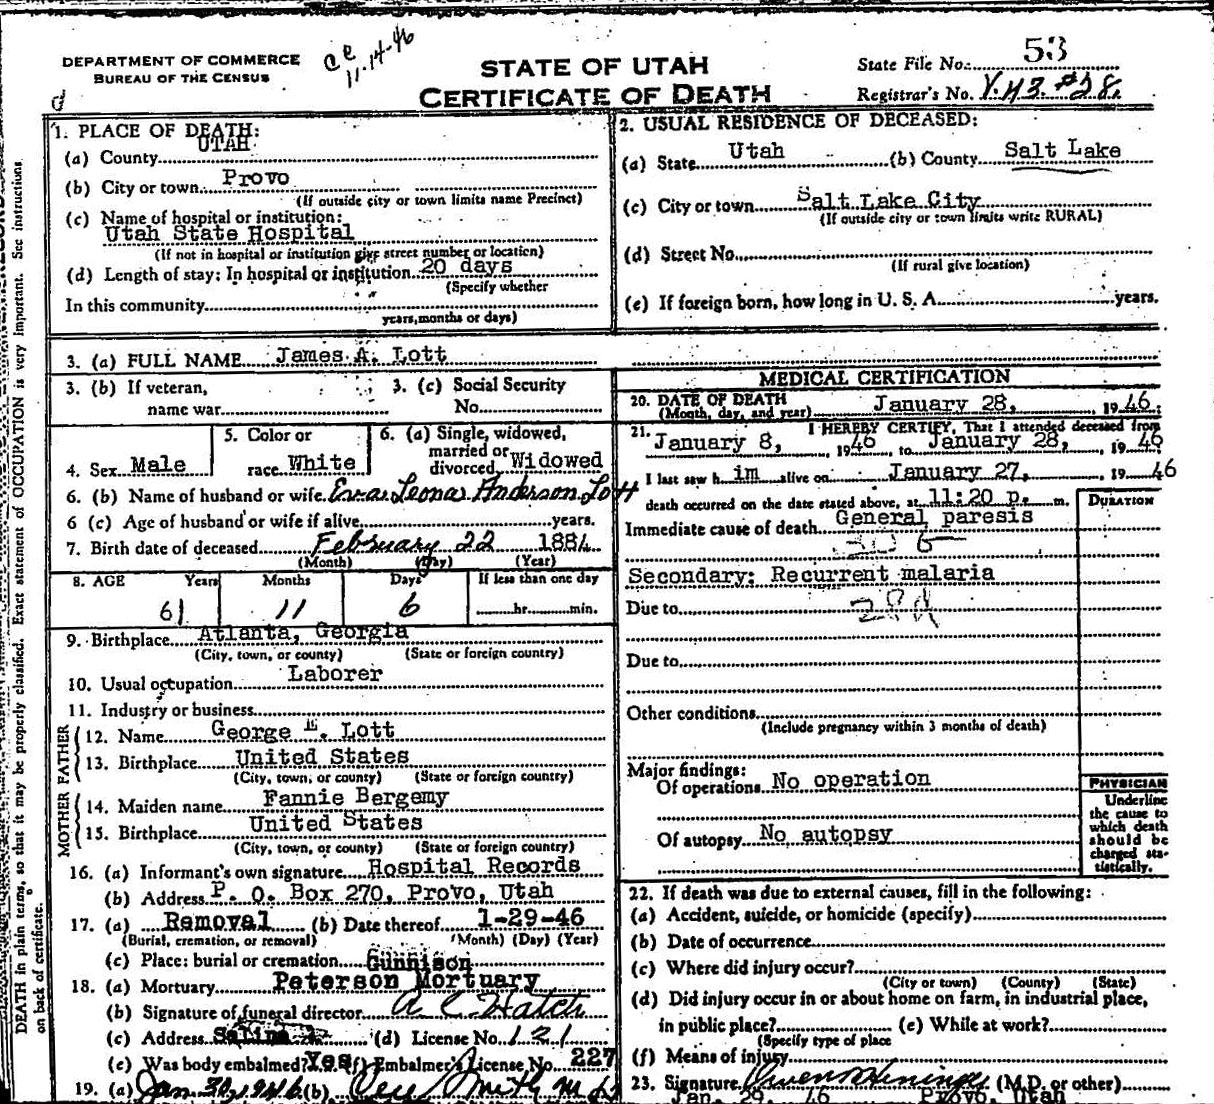 DEPARTMENT OF COMMERCE
BUREAU OF THE CENSUS
11-14-46
STATE OF UTAH
CERTIFICATE OF DEATH
State File No. 53
Registrar's No. Y.43 #28
d
1. PLACE OF DEATH:
(a) County UTAH
(b) City or town Provo
(If outside city or town limits name Precinct)
(c) Name of hospital or institution:
Utah State Hospital
(If not in hospital or institution give street number or location)
(d) Length of stay: In hospital or institution 20 days
(Specify whether
In this community
years, months or days)
2. USUAL RESIDENCE OF DECEASED:
(a) State Utah (b) County Salt Lake
(c) City or town Salt Lake City
(If outside city or town limits write RURAL)
(d) Street No.
(If rural give location)
(e) If foreign born, how long in U. S. A. years.
3. (a) FULL NAME James A. Lott
3. (b) If veteran, 3. (c) Social Security
name war No.
4. Sex Male
5. Color or
race White
6. (a) Single, widowed,
married or
divorced Widowed
6. (b) Name of husband or wife Eva Leona Anderson Lott
6 (c) Age of husband or wife if alive years.
7. Birth date of deceased February 22 1884
(Month) (Day) (Year)
8. AGE Years Months Days If less than one day
61 11 6 hr. min.
9. Birthplace Atlanta, Georgia
(City, town, or county) (State or foreign country)
10. Usual occupation Laborer
11. Industry or business
FATHER
12. Name George E. Lott
13. Birthplace United States
(City, town, or county) (State or foreign country)
MOTHER
14. Maiden name Fannie Bergemy
15. Birthplace United States
(City, town, or county) (State or foreign country)
16. (a) Informant's own signature Hospital Records
(b) Address P. O. Box 270, Provo, Utah
17. (a) Removal (b) Date thereof 1-29-46
(Burial, cremation, or removal) (Month) (Day) (Year)
(c) Place: burial or cremation Gunnison
18. (a) Mortuary Peterson Mortuary
(b) Signature of funeral director A C Hatch
(c) Address Salina (d) License No. 121
(e) Was body embalmed? Yes (f) Embalmer's License No. 227
19. (a) Jan. 30, 1946 (b)
MEDICAL CERTIFICATION
20. DATE OF DEATH
(Month, day, and year) January 28, 1946.
21. I HEREBY CERTIFY, That I attended deceased from
January 8, 1946 to January 28, 1946
I last saw him alive on January 27, 19 46
death occurred on the date stated above, at 11:20 p. m.
DURATION
Immediate cause of death General paresis
Secondary: Recurrent malaria
Due to
Due to
Other conditions
(Include pregnancy within 3 months of death)
Major findings:
Of operations No operation
Of autopsy No autopsy
PHYSICIAN
Underline
the cause to
which death
should be
charged sta-
tistically.
22. If death was due to external causes, fill in the following:
(a) Accident, suicide, or homicide (specify)
(b) Date of occurrence
(c) Where did injury occur?
(City or town) (County) (State)
(d) Did injury occur in or about home on farm, in industrial place,
in public place? (e) While at work?
(Specify type of place
(f) Means of injury
23. Signature (M.D. or other)
Jan. 29. 46 Provo, Utah
DEATH in plain terms, so that it may be properly classified. Exact statement of OCCUPATION is very important. See instructions
on back of certificate.